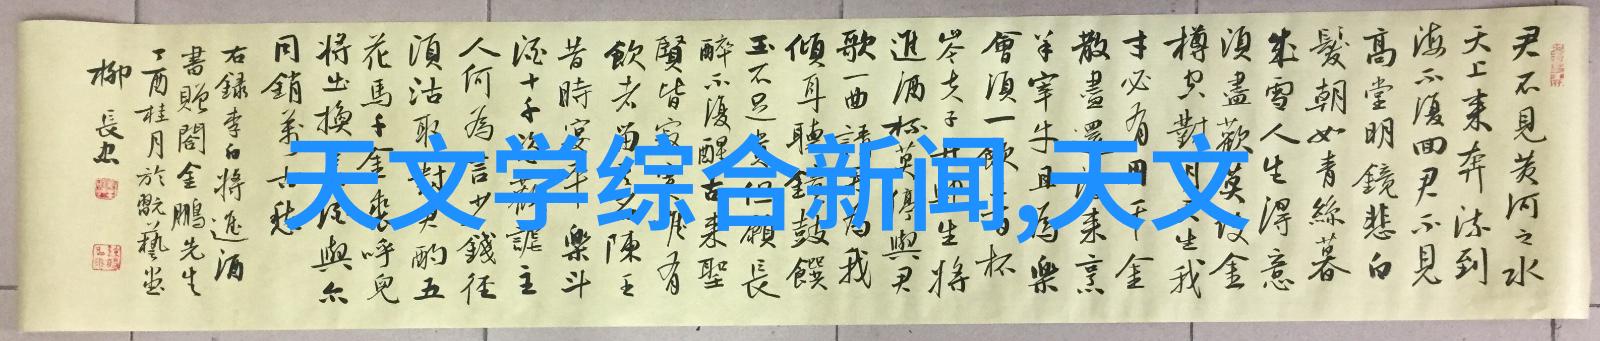 君不見黃河之水
天上來奔流到
海不復回君不見
高堂明鏡悲白
髮朝如青絲暮
成雪人生得意
須盡歡莫使金
樽空對月天生我
才必有用千金
散盡還復來烹
羊宰牛且為樂
會須一飲三百杯
岑夫子丹丘生將
進酒杯莫停與君
歌一曲請君為我
傾耳聽鐘鼓饌
玉不足貴但願長
醉不復醒古來聖
賢皆寂寞惟有
飲者留其名陳王
昔時宴平樂斗
酒十千恣歡謔主
人何為言少錢徑
須沽取對君酌五
花馬千金裘呼兒
將出換美酒與爾
同銷萬古愁
右錄李白將進酒
書贈閤金鵬先生
丁酉桂月於翫藝堂
柳長忠
天文学综合新闻,天文